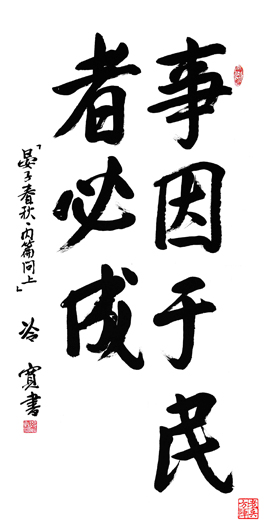 事因于民
者必成
「晏子春秋·内篇问上」
冷寛書